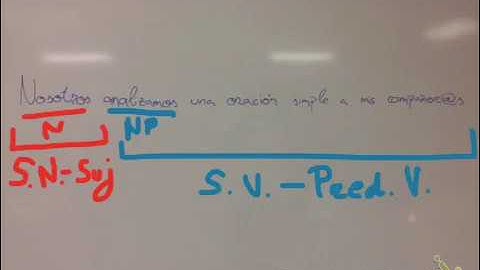 Nosotros analizamos una oración simple a mis compañer@s
N NP
S.N.-Suj
S.V.-Pred.V.